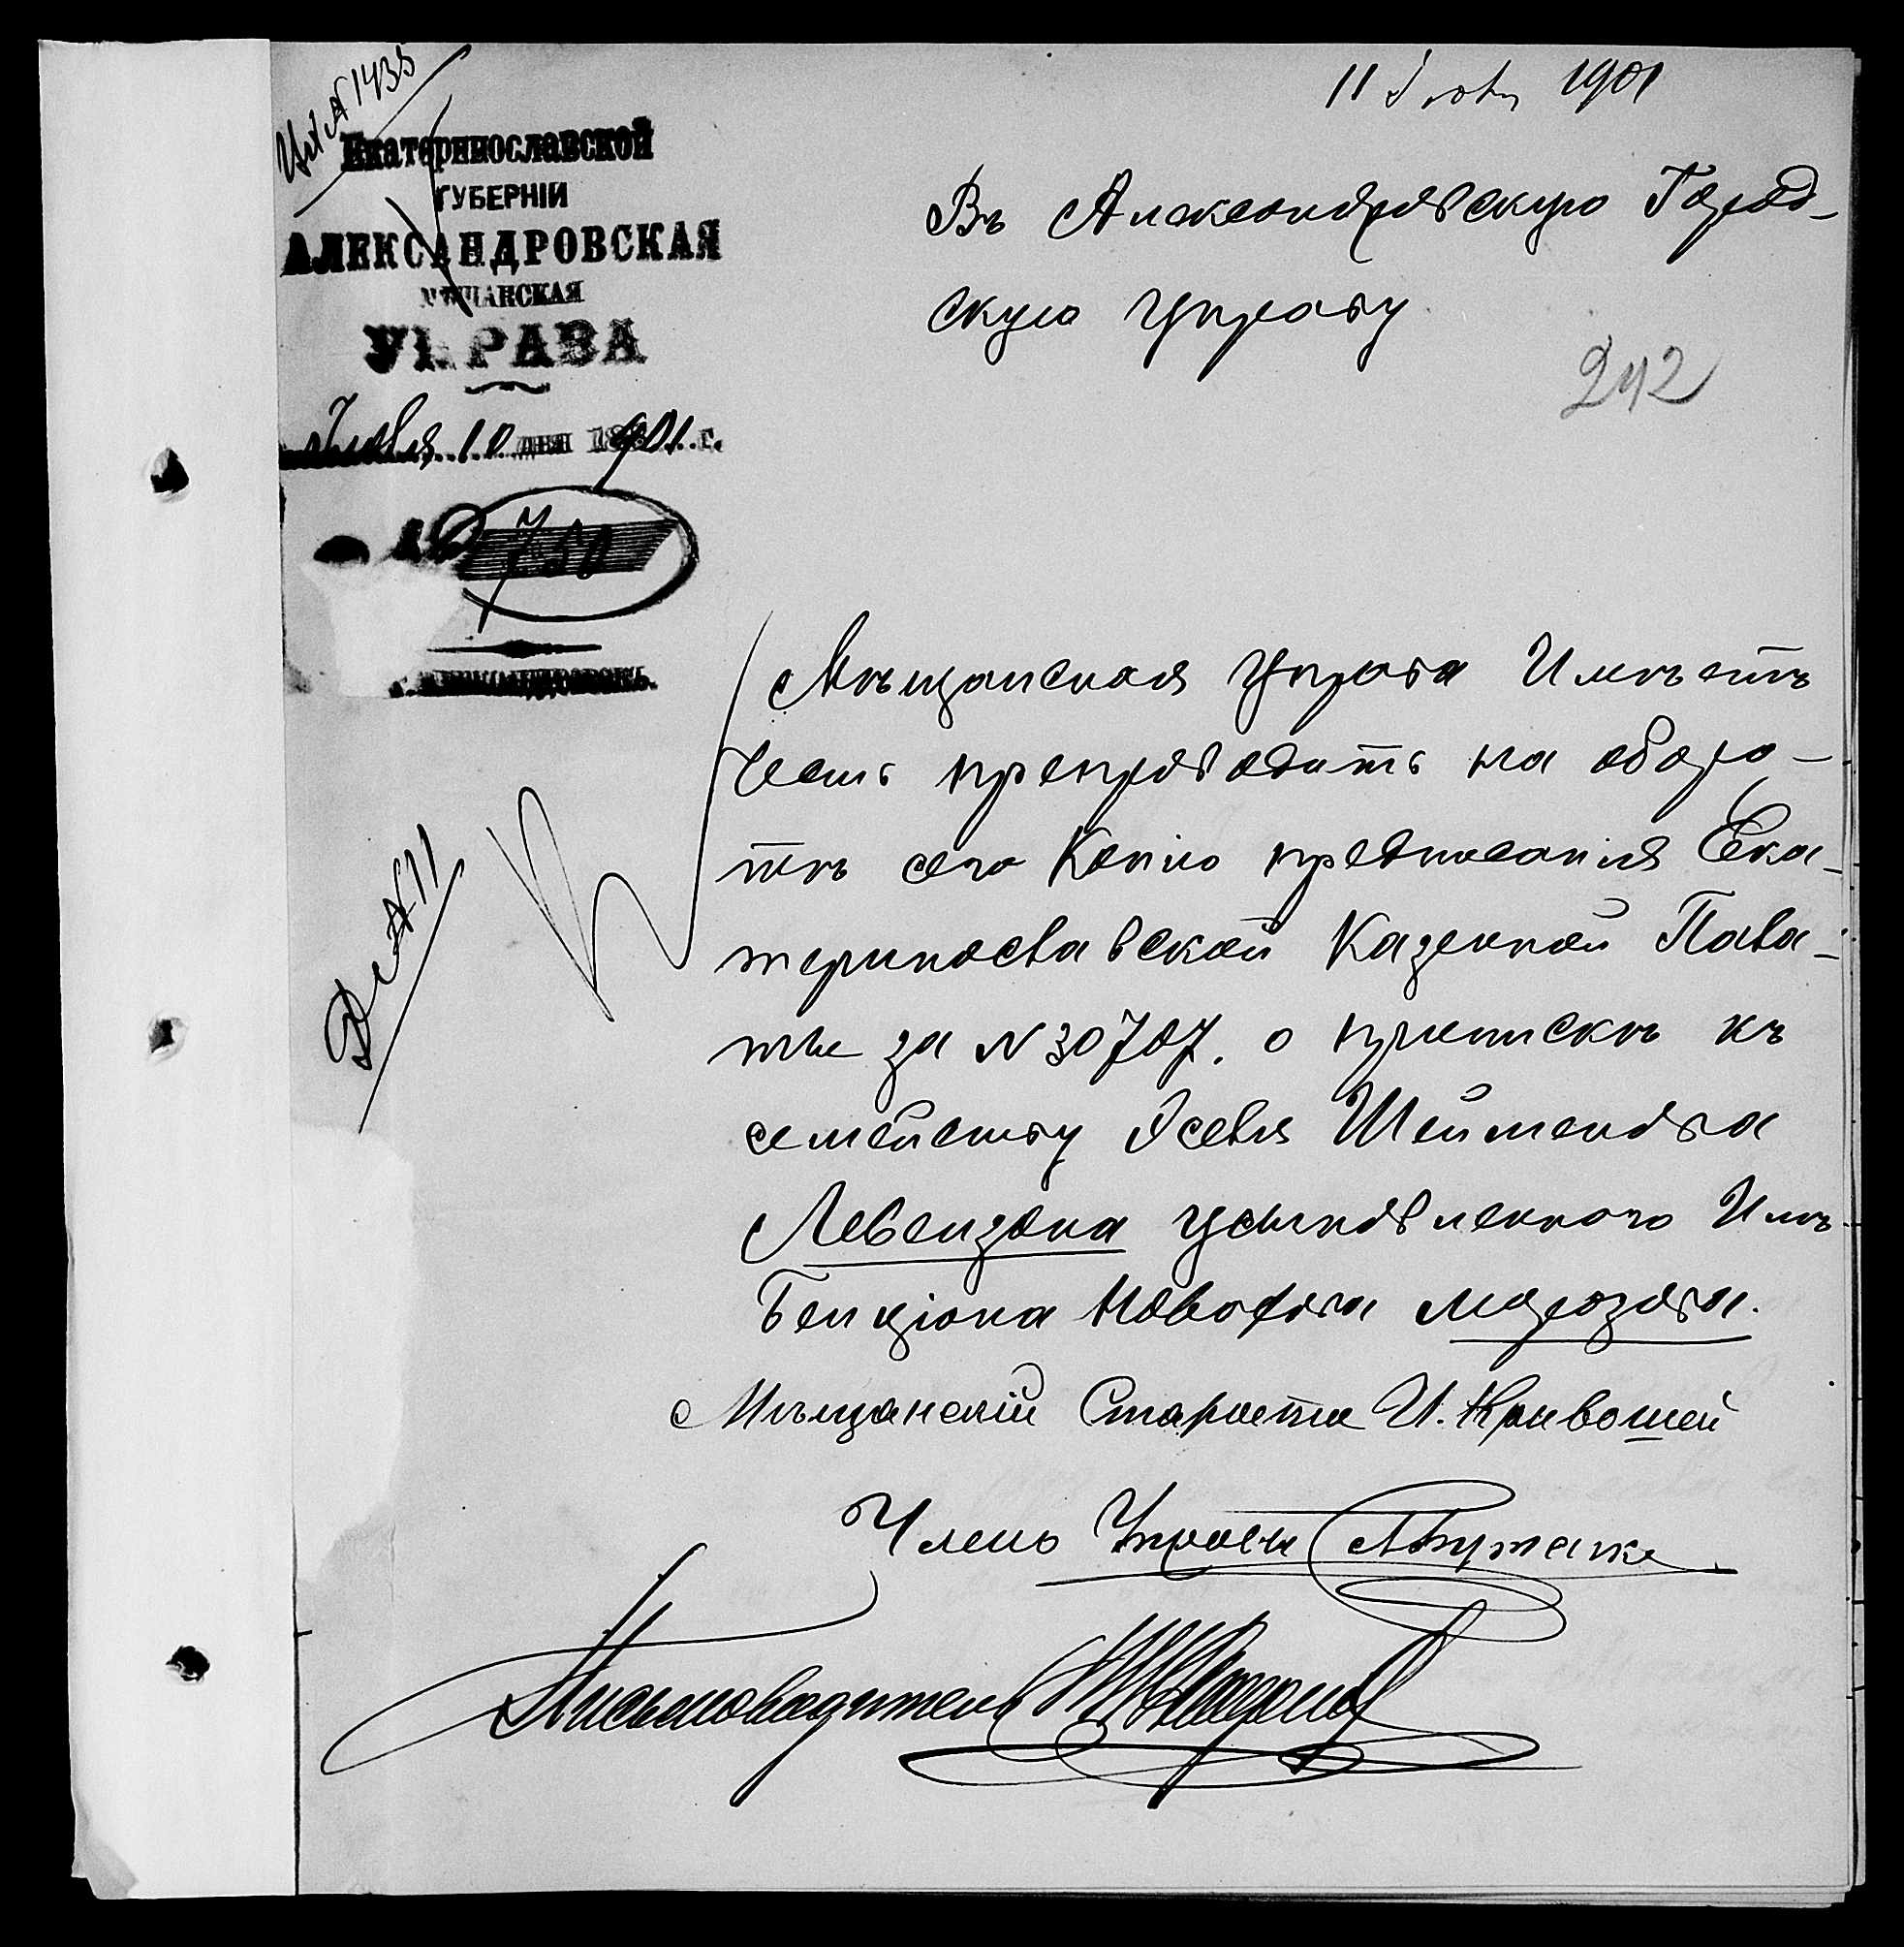 11 Іюля 1901
Вх № 1435
Екатеринославской
ГУБЕРНІИ
АЛЕКСАНДРОВСКАЯ
МѢЩАНСКАЯ
УПРАВА
Іюля 10 дня 1901 г.
№ 750
г. Александровскъ.
Въ Александровскую Город-
скую Управу
242
Мѣщанская Управа Имѣетъ
честь препроводить на оборо-
тѣ сего Копію предписанія Ека-
теринославской Казенной Пала-
ты за № 30707. о припискѣ къ
семейству Іоселя Шеймендва
Левензона усыновленного Имъ
Бенціона Новофова Морозова.
Мѣщанскій Староста И. Кривошей
Членъ Управы
Письмоводитель
Д. № 11